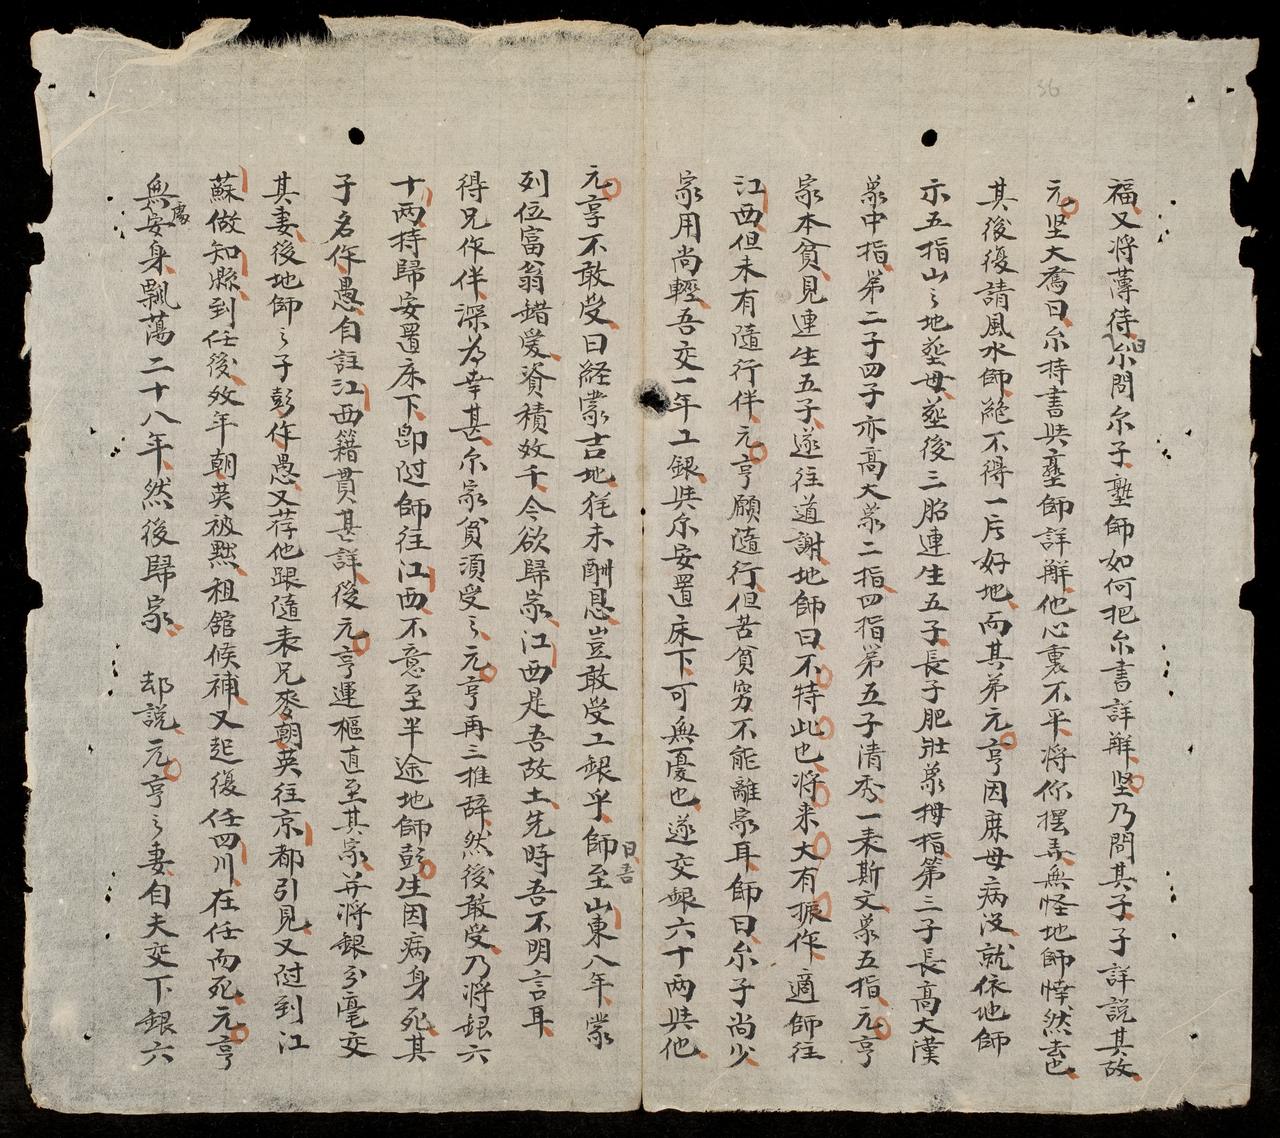 福又將薄待尔曰問尔子塾師如何把尔書詳解坚乃問其子子詳說其故
元坚大奮曰尔持書與塾師詳解他心裏不平將你擺弄無怪地師悻然去也
其後復請風水師絶不得一片好地而其弟元亨因庶母病没就依地師
示五指山之地塟母塟後三胎連生五子長子肥壯象拇指第三子長高大漢
象中指第二子四子亦高大象二指四指第五子清秀一表斯文象五指元亨
家本貧見連生五子遂往道謝地師曰不特此也將来大有振作適師往
江西但未有隨行伴元亨願隨行但苦貧穷不能離家耳師曰尔子尚少
家用尚輕吾交一年工銀與尔安置床下可無憂也遂交銀六十両與他
元亨不敢受曰経蒙吉地毫未酬恩豈敢受工銀乎師曰吾至山東八年蒙
列位富翁錯愛資積数千今欲歸家江西是吾故土先時吾不明言耳
得兄作伴深為幸甚尔家貧須受之元亨再三推辞然後敢受乃將銀六
十両持歸安置床下即随師往江西不意至半途地師彭生因病身死其
子名作愚自註江西籍貫甚詳後元亨運柩直至其家并將銀分毫交
其妻後地師之子彭作愚又荐他跟隨表兄麥朝英往京都引見又随到江
蘇做知縣到任後数年朝英被黙租舘候補又起復任四川在任而死元亨
無處安身飄蕩二十八年然後歸家 却說元亨之妻自夫交下銀六
36